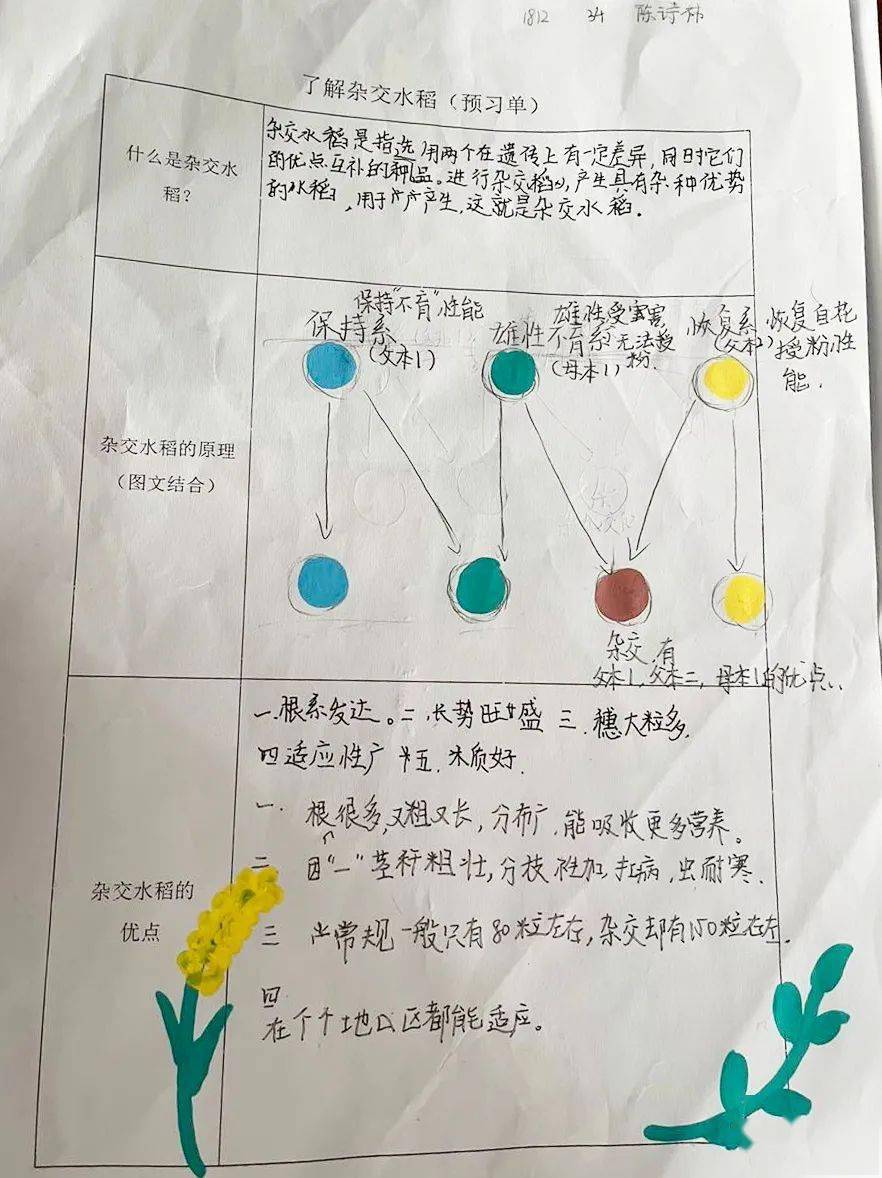 1812 34 陈诗
了解杂交水稻（预习单）
什么是杂交水
稻？
杂交水稻是指选用两个在遗传上有一定差异，同时它们
的优点互补的品。进行杂交，产生具有杂种优势
的水稻，用于产生，这就是杂交水稻。
杂交水稻的原理
（图文结合）
保持“不育”性能
保持系
（父本1）
雄性不育系
（母本1）
雄性受害，
无法授
粉.
恢复系
（父本2）
恢复自花
授粉性
能.
杂交，有
父本1，父本二，母本1的优点、
杂交水稻的
优点
一.根系发达。二.长势旺盛 三.穗大粒多.
四适应性广 五.米质好.
一. 根很多，又粗又长，分布广，能吸收更多营养。
二 因“一”茎秆粗壮，分枝 加，抗病，虫耐寒.
三 常规一般只有80粒左右，杂交却有150粒在左.
四
在个个地区都能适应。